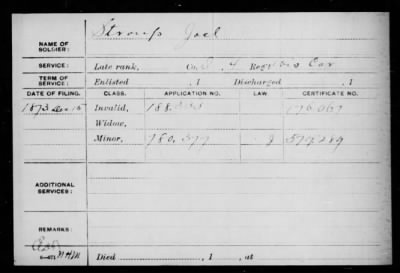 NAME OF SOLDIER: Stroup Joel
SERVICE: Late rank, Co. 4 Reg't Cav
TERM OF SERVICE: Enlisted , 1 Discharged , 1
DATE OF FILING. CLASS. APPLICATION NO. LAW. CERTIFICATE NO.
1873 Dec 15 Invalid, 188. 176.067
Widow,
Minor, 780.377
ADDITIONAL SERVICES:
REMARKS:
Died , 1 , at